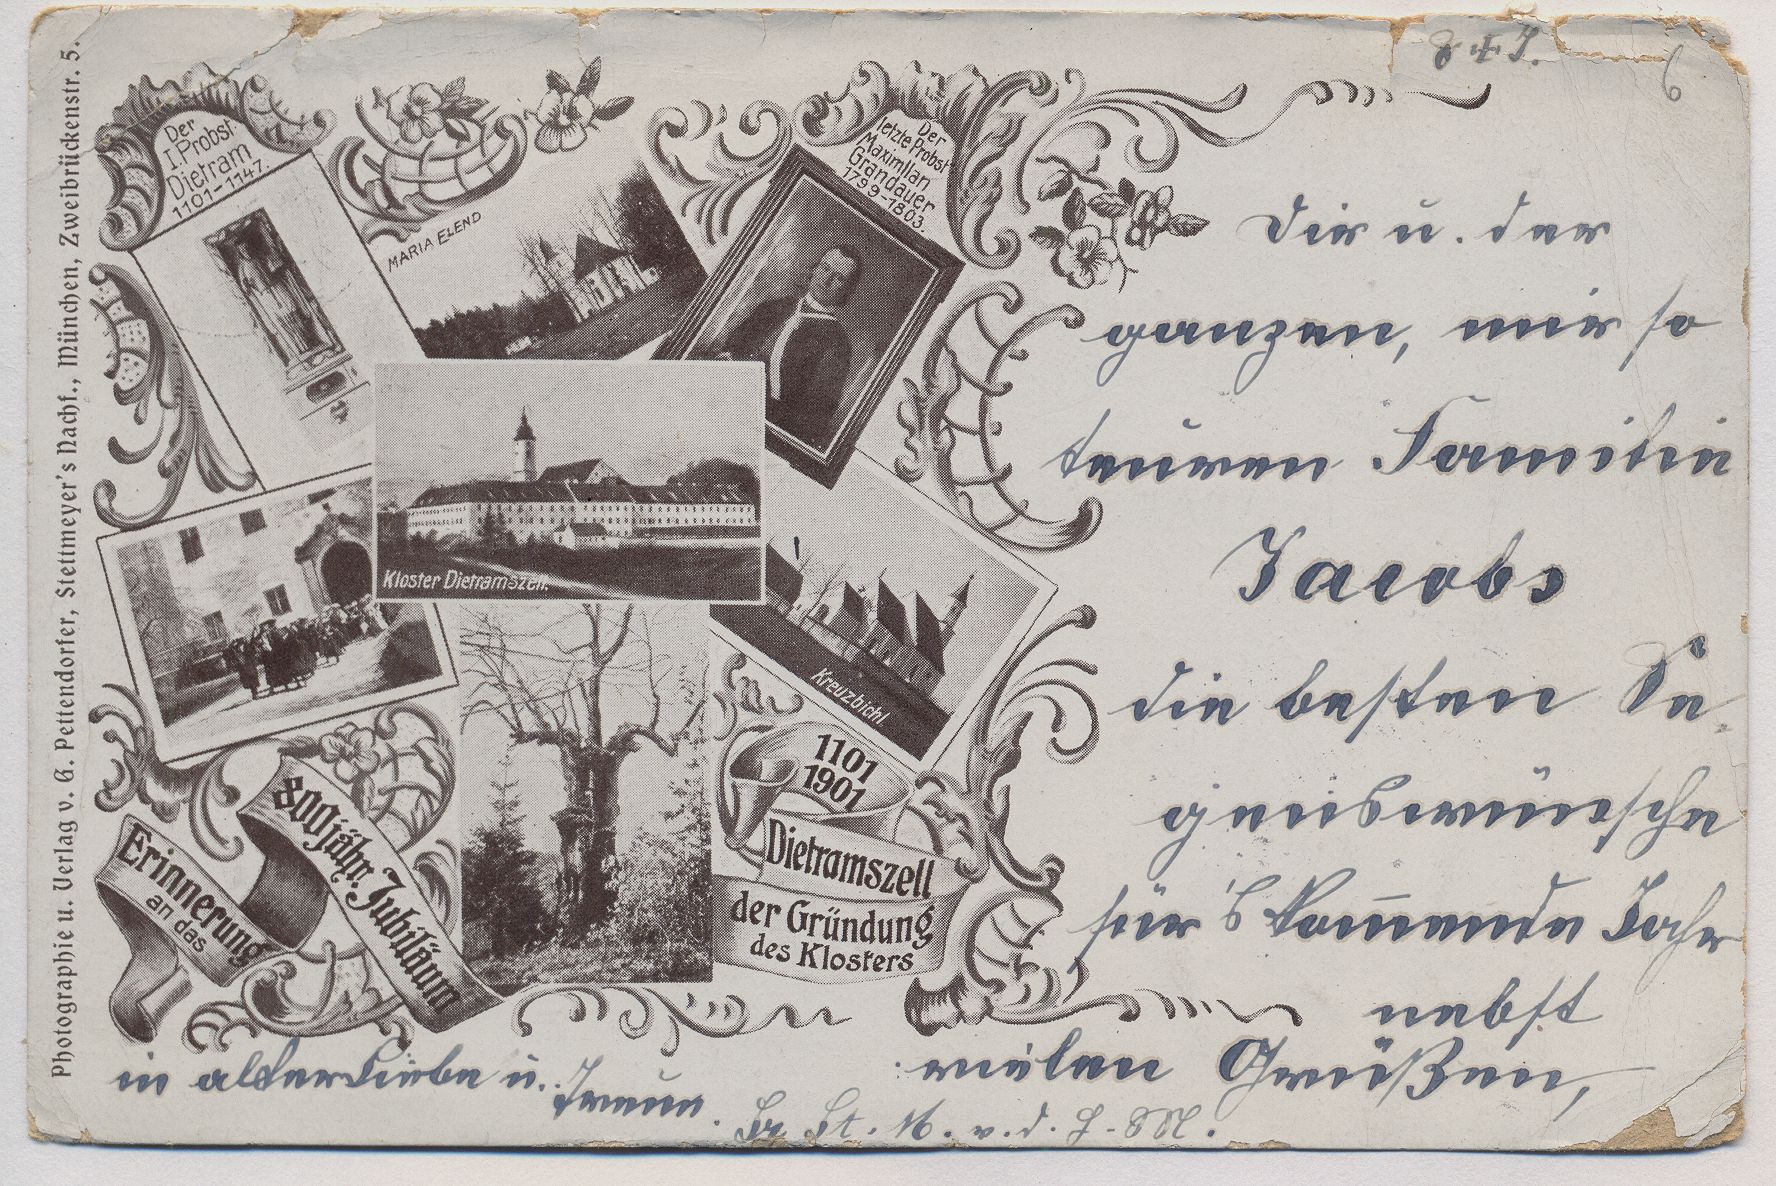 Photographie u. Verlag v. G. Pettendorfer, Stettmeyer's Nachf., München, Zweibrückenstr. 5.
Der
I. Probst
Dietram
1101-1147.
MARIA ELEND
Der
letzte Probst
Maximilian
Grandauer
1799-1803.
Kloster Dietramszell.
Kreuzbichl.
Erinnerung
an das
800jähr. Jubiläum
1101
1901
Dietramszell
der Gründung
des Klosters
6
Dir u. der
ganzen, mir so
teuren Familie
Jacobs
die besten Se-
genswünsche
für's kommende Jahr
nebst
vielen Grüßen,
in alter Liebe u. Treue.